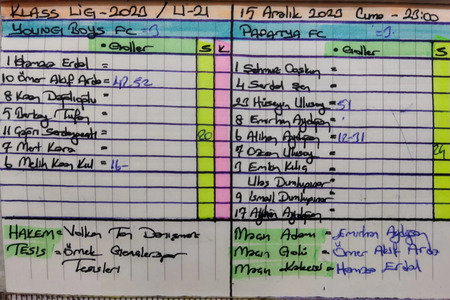 KLASS LİG - 2023 / U-21
15 Aralık 2023 Cuma - 23:00
YOUNG BOYS FC = 3
Goller S K
1 Hamza Erdal =
10 Ömer Akif Arda = 42-52
8 Kaan
5 Berkay
11 Çağrı 20
7 Mert Kara =
6 Melih Kaan Kul = 16-
HAKEM = Volkan
TESİS = Örnek
Tesisleri
PAPATYA FC = 3
Goller S
1 =
4 Serdal Şen =
23 Hüseyin Ulusoy = 51
8 Emirhan Aydoğan =
6 Alihan Aydoğan = 12-31
7 Ozan Ulusoy = 24
Emin Kılıç =
Ulaş Dumlupınar =
9 İsmail Dumlupınar =
17 Aydoğan =
Maçın Adamı = Emirhan Aydoğan
Maçın Golü = Ömer Akif Arda
Maçın = Hamza Erdal